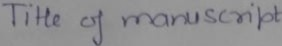 Title of manuscript